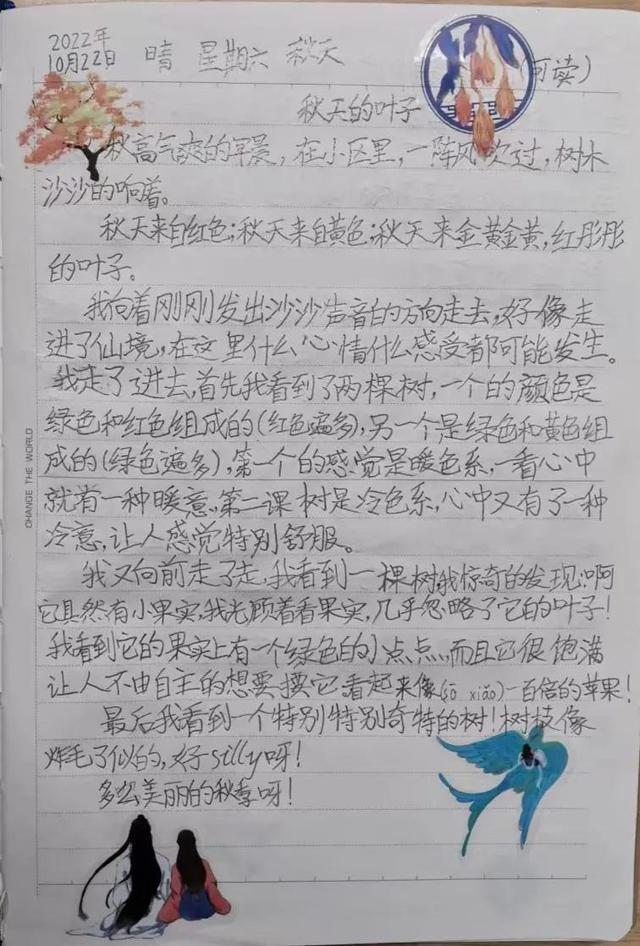 2022年
10月22日 晴 星期六 秋天 可读)
秋天的叶子
秋高气爽的早晨,在小区里,一阵风吹过,树木
沙沙的响着。
秋天来自红色;秋天来自黄色;秋天来金黄金黄,红彤彤
的叶子。
我向着刚刚发出沙沙声音的方向走去,好像走
进了仙境,在这里什么心情什么感受都可能发生。
我走了进去,首先我看到了两棵树,一个的颜色是
绿色和红色组成的(红色遍多),另一个是绿色和黄色组
成的(绿色遍多),第一个的感觉是暖色系,一看心中
就有一种暖意。第二课树是冷色系,心中又有了一种
冷意,让人感觉特别舒服。
我又向前走了走,我看到一棵树,我惊奇的发现:啊
它具然有小果实,我光顾着看果实,几乎忽略了它的叶子!
我看到它的果实上有一个绿色的小点点,而且它很饱满
让人不由自主的想要摸它,看起来像(sō xiǎo)一百倍的苹果!
最后我看到一个特别特别奇特的树!树枝像
炸毛了似的,好silly呀!
多么美丽的秋季呀!
CHANGE THE WORLD